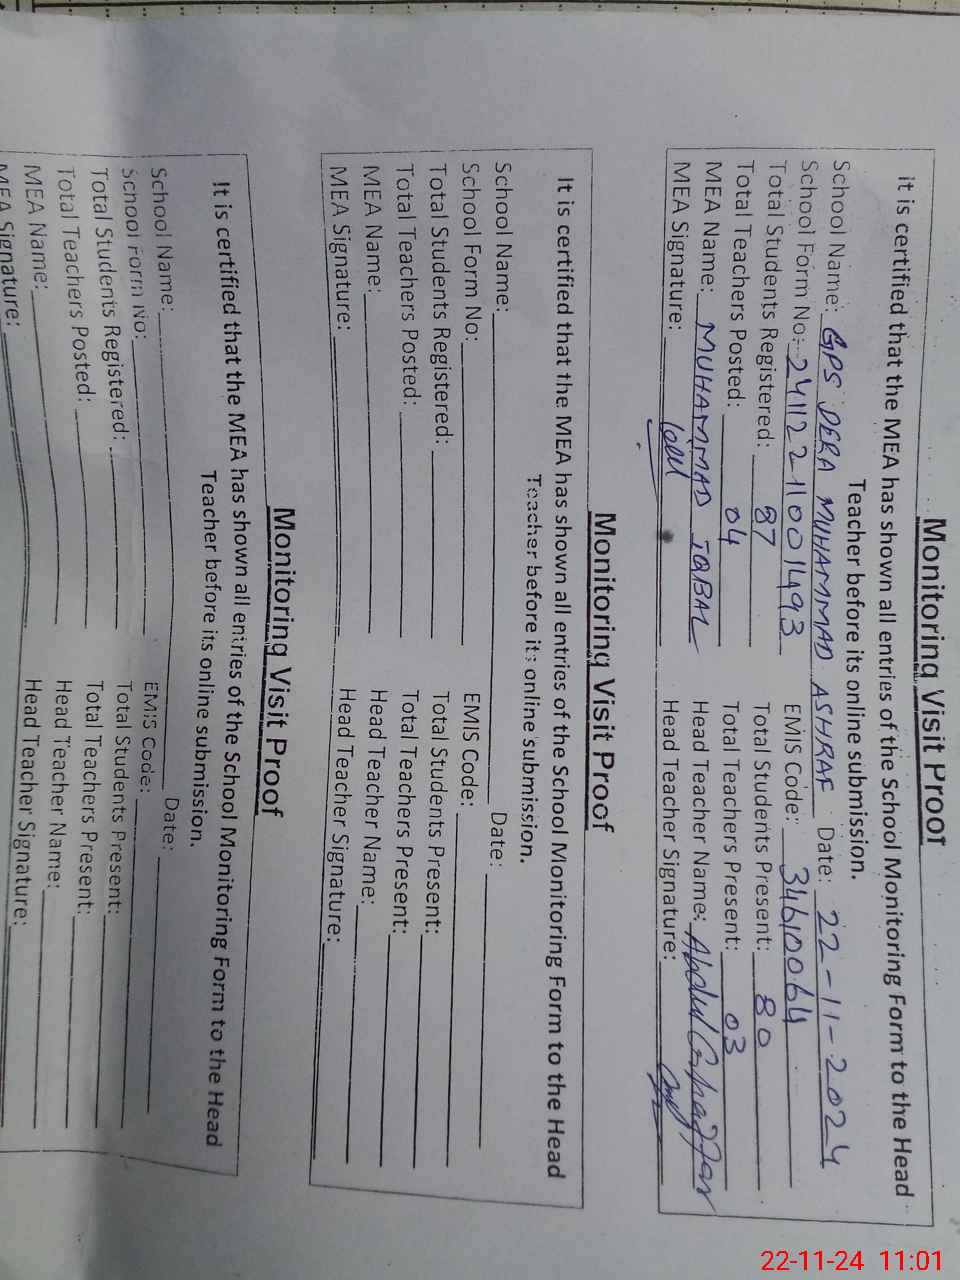 Monitoring Visit Proof
it is certified that the MEA has shown all entries of the School Monitoring Form to the Head
Teacher before its online submission.
School Name: GPS DERA MUHAMMAD ASHRAF Date: 22-11-2024
School Form No: 24112211001493 EMIS Code: 34610064
Total Students Registered: 87 Total Students Present: 80
Total Teachers Posted: 04 Total Teachers Present: 03
MEA Name: MUHAMMAD IQBAL Head Teacher Name: Abdul
MEA Signature: Head Teacher Signature:
Monitoring Visit Proof
It is certified that the MEA has shown all entries of the School Monitoring Form to the Head
Teacher before its online submission.
School Name: Date:
School Form No: EMIS Code:
Total Students Registered: Total Students Present:
Total Teachers Posted: Total Teachers Present:
MEA Name: Head Teacher Name:
MEA Signature: Head Teacher Signature:
Monitoring Visit Proof
It is certified that the MEA has shown all entries of the School Monitoring Form to the Head
Teacher before its online submission.
School Name: Date:
School Form No: EMIS Code:
Total Students Registered: Total Students Present:
Total Teachers Posted: Total Teachers Present:
MEA Name: Head Teacher Name:
MEA Signature: Head Teacher Signature:
22-11-24 11:01